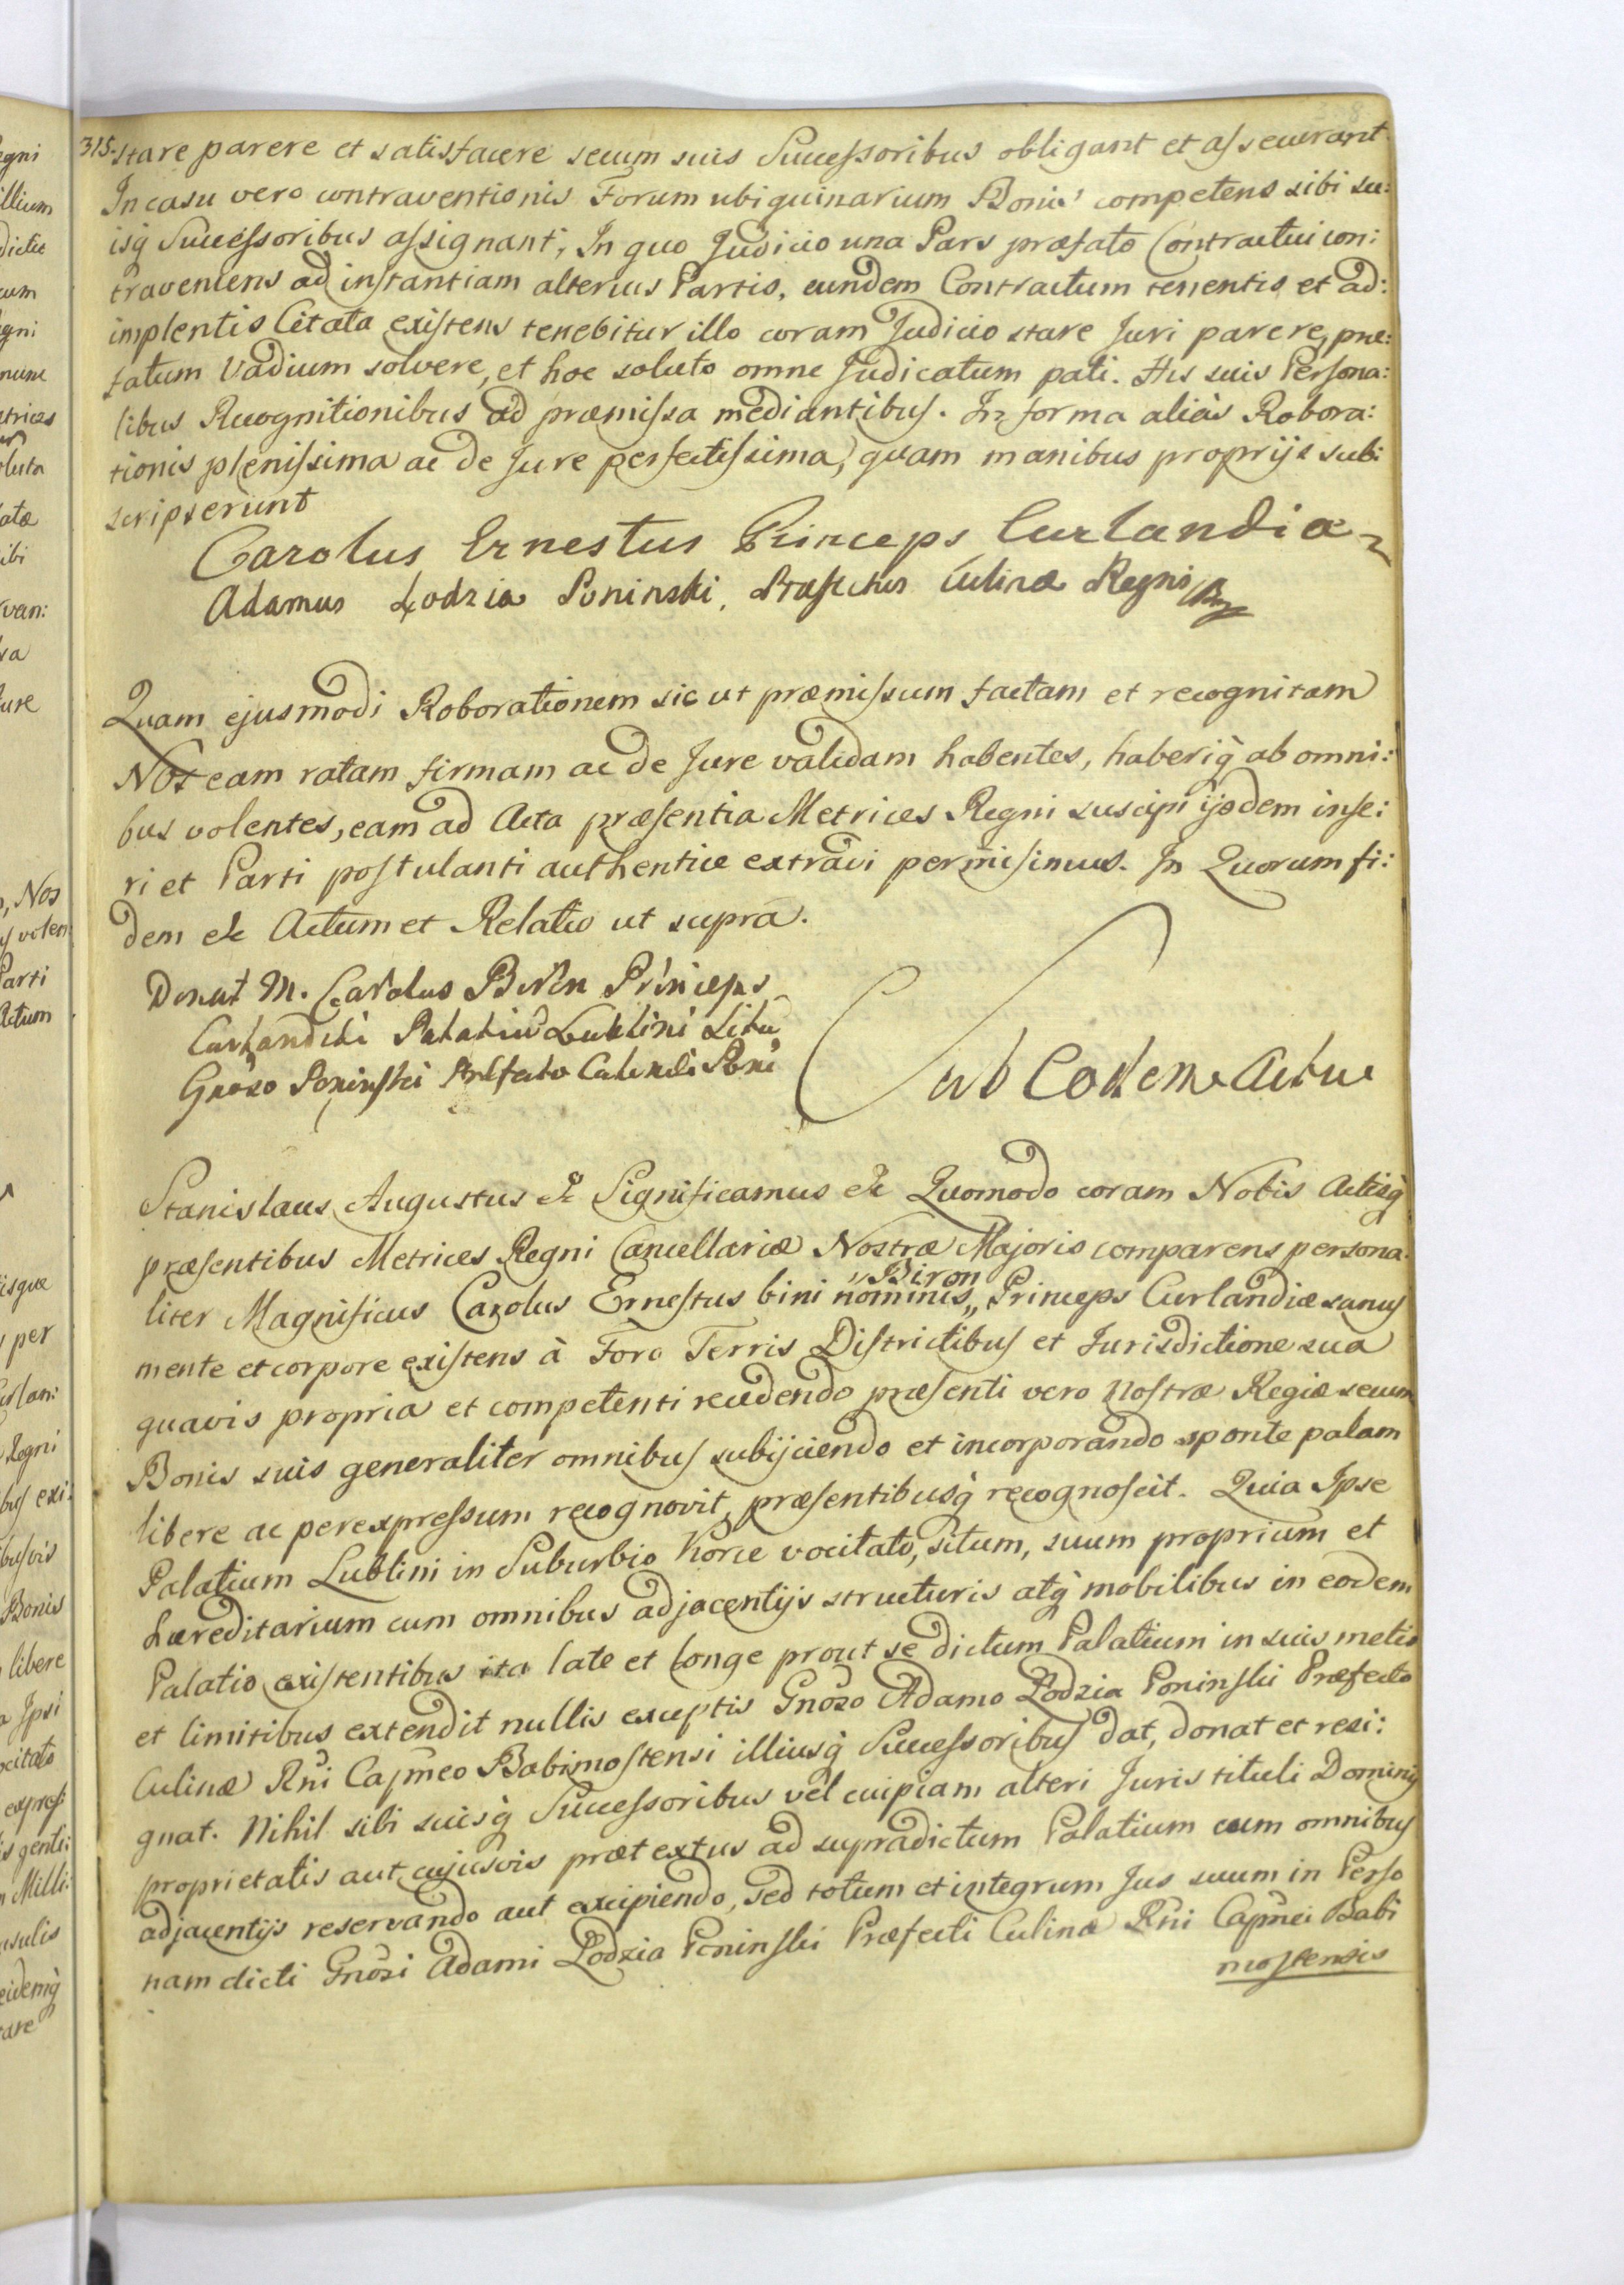 315. stare parere et satisfacere secum suis Successoribus obligant et asseverant.
In casu vero contraventionis Forum ubiquinarium Bonis competens sibi su:
isq̀ Successoribus assignant, In quo Judicio una Pars præfato Contractui con:
traveniens ad instantiam alterius Partis, eundem Contractum tenentis et ad:
implentis Citata existens tenebitur illo coram Judicio stare Juri parere, præ:
fatum Vadium solvere, et hoc soluto omne Judicatum pati. His suis Persona:
libus Recognitionibus ad præmissa mediantibus. In forma alias Robora:
tionis plenissima ac de Jure perfectissima, quam manibus proprijs sub:
scripserunt
Carolus Ernestus Princeps Curlandiæ
Adamus Lodzia Poninski, Præfectus Culinæ Regni
Quam ejusmodi Roborationem sic ut præmissum factam et recognitam
Nos eam ratam firmam ac de Jure validam habentes, haberiq̀ ab omni:
bus volentes, eam ad Acta præsentia Metrices Regni suscipi ijsdem inse:
ri et Parti postulanti authentice extradi permisimus. In Quorum fi:
dem &c Actum et Relatio ut supra.
Donat M. Carolus Biron Princeps
Curlandiæ Palatium Lublini Situ
Gnoso Poninski Præfecto Culinæ Rni
Sub Eodem Actu
Stanislaus Augustus &c Significamus &c Quomodo coram Nobis Actisq̀
præsentibus Metrices Regni Cancellariæ Nostræ Majoris comparens persona:
liter Magnificus Carolus Ernestus bini nominis „Biron„ Princeps Curlandiæ sanus
mente et corpore existens à Foro Terris Districtibus et Jurisdictione sua
quavis propria et competenti recedendo præsenti vero Nostræ Regiæ secum
Bonis suis generaliter omnibus subijciendo et incorporando sponte palam
libere ac per expressum recognovit, præsentibusq̀ recognoscit. Quia Ipse
Palatium Lublini in Suburbio Korce vocitato, situm, suum proprium et
hæreditarium cum omnibus adjacentijs structuris atq̀ mobilibus in eodem
Palatio existentibus ita late et longe prout se dictum Palatium in suis metis
et limitibus extendit nullis exceptis Gnoso Adamo Lodzia Poninski Præfecto
Culinæ Rñi Capñeo Babimostensi illiusq̀ Successoribus dat, donat et resi:
gnat. Nihil sibi suisq̀ Successoribus vel cuipiam alteri Juris tituli Dominij
proprietatis aut cujusvis prætextus ad supradictum Palatium cum omnibus
adjacentijs reservando aut excipiendo, sed totum et integrum Jus suum in Perso
nam dicti Gnosi Adami Lodzia Poninski Præfecti Culinæ Rñi Capñei Babi
mostensis